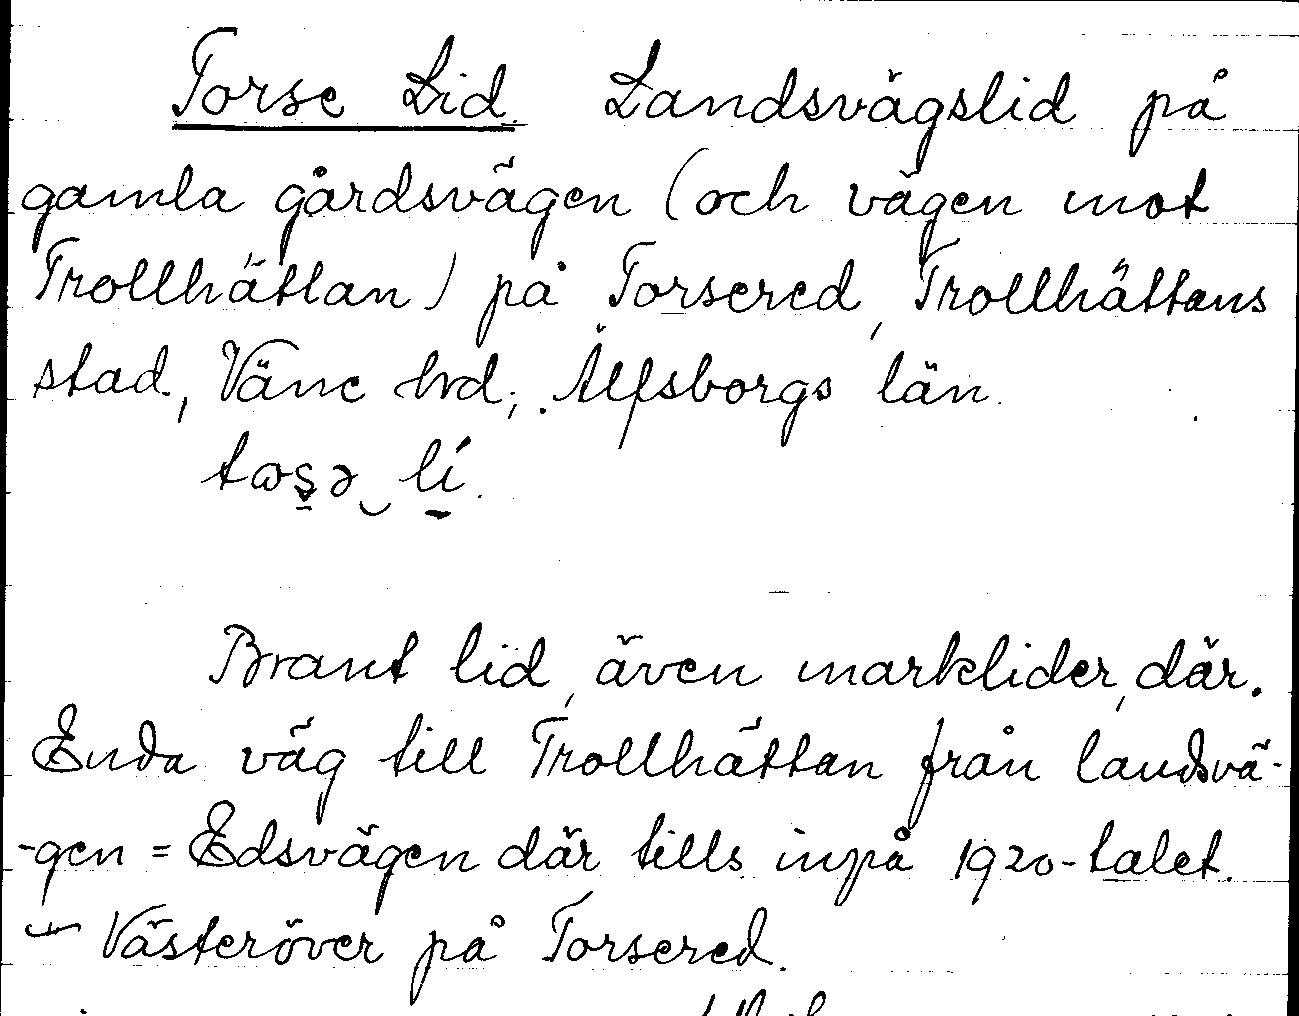 Torse Lid. Landsvägslid på
gamla gårdsvägen (och vägen mot
Trollhättan) på Torsered, Trollhättans
stad, Väne hrd, Älfsborgs län.
Brant lid, även marklider, där.
Enda väg till Trollhättan från landsvä-
-gen = Edsvägen där tills inpå 1920-talet.
Västeröver på Torsered.